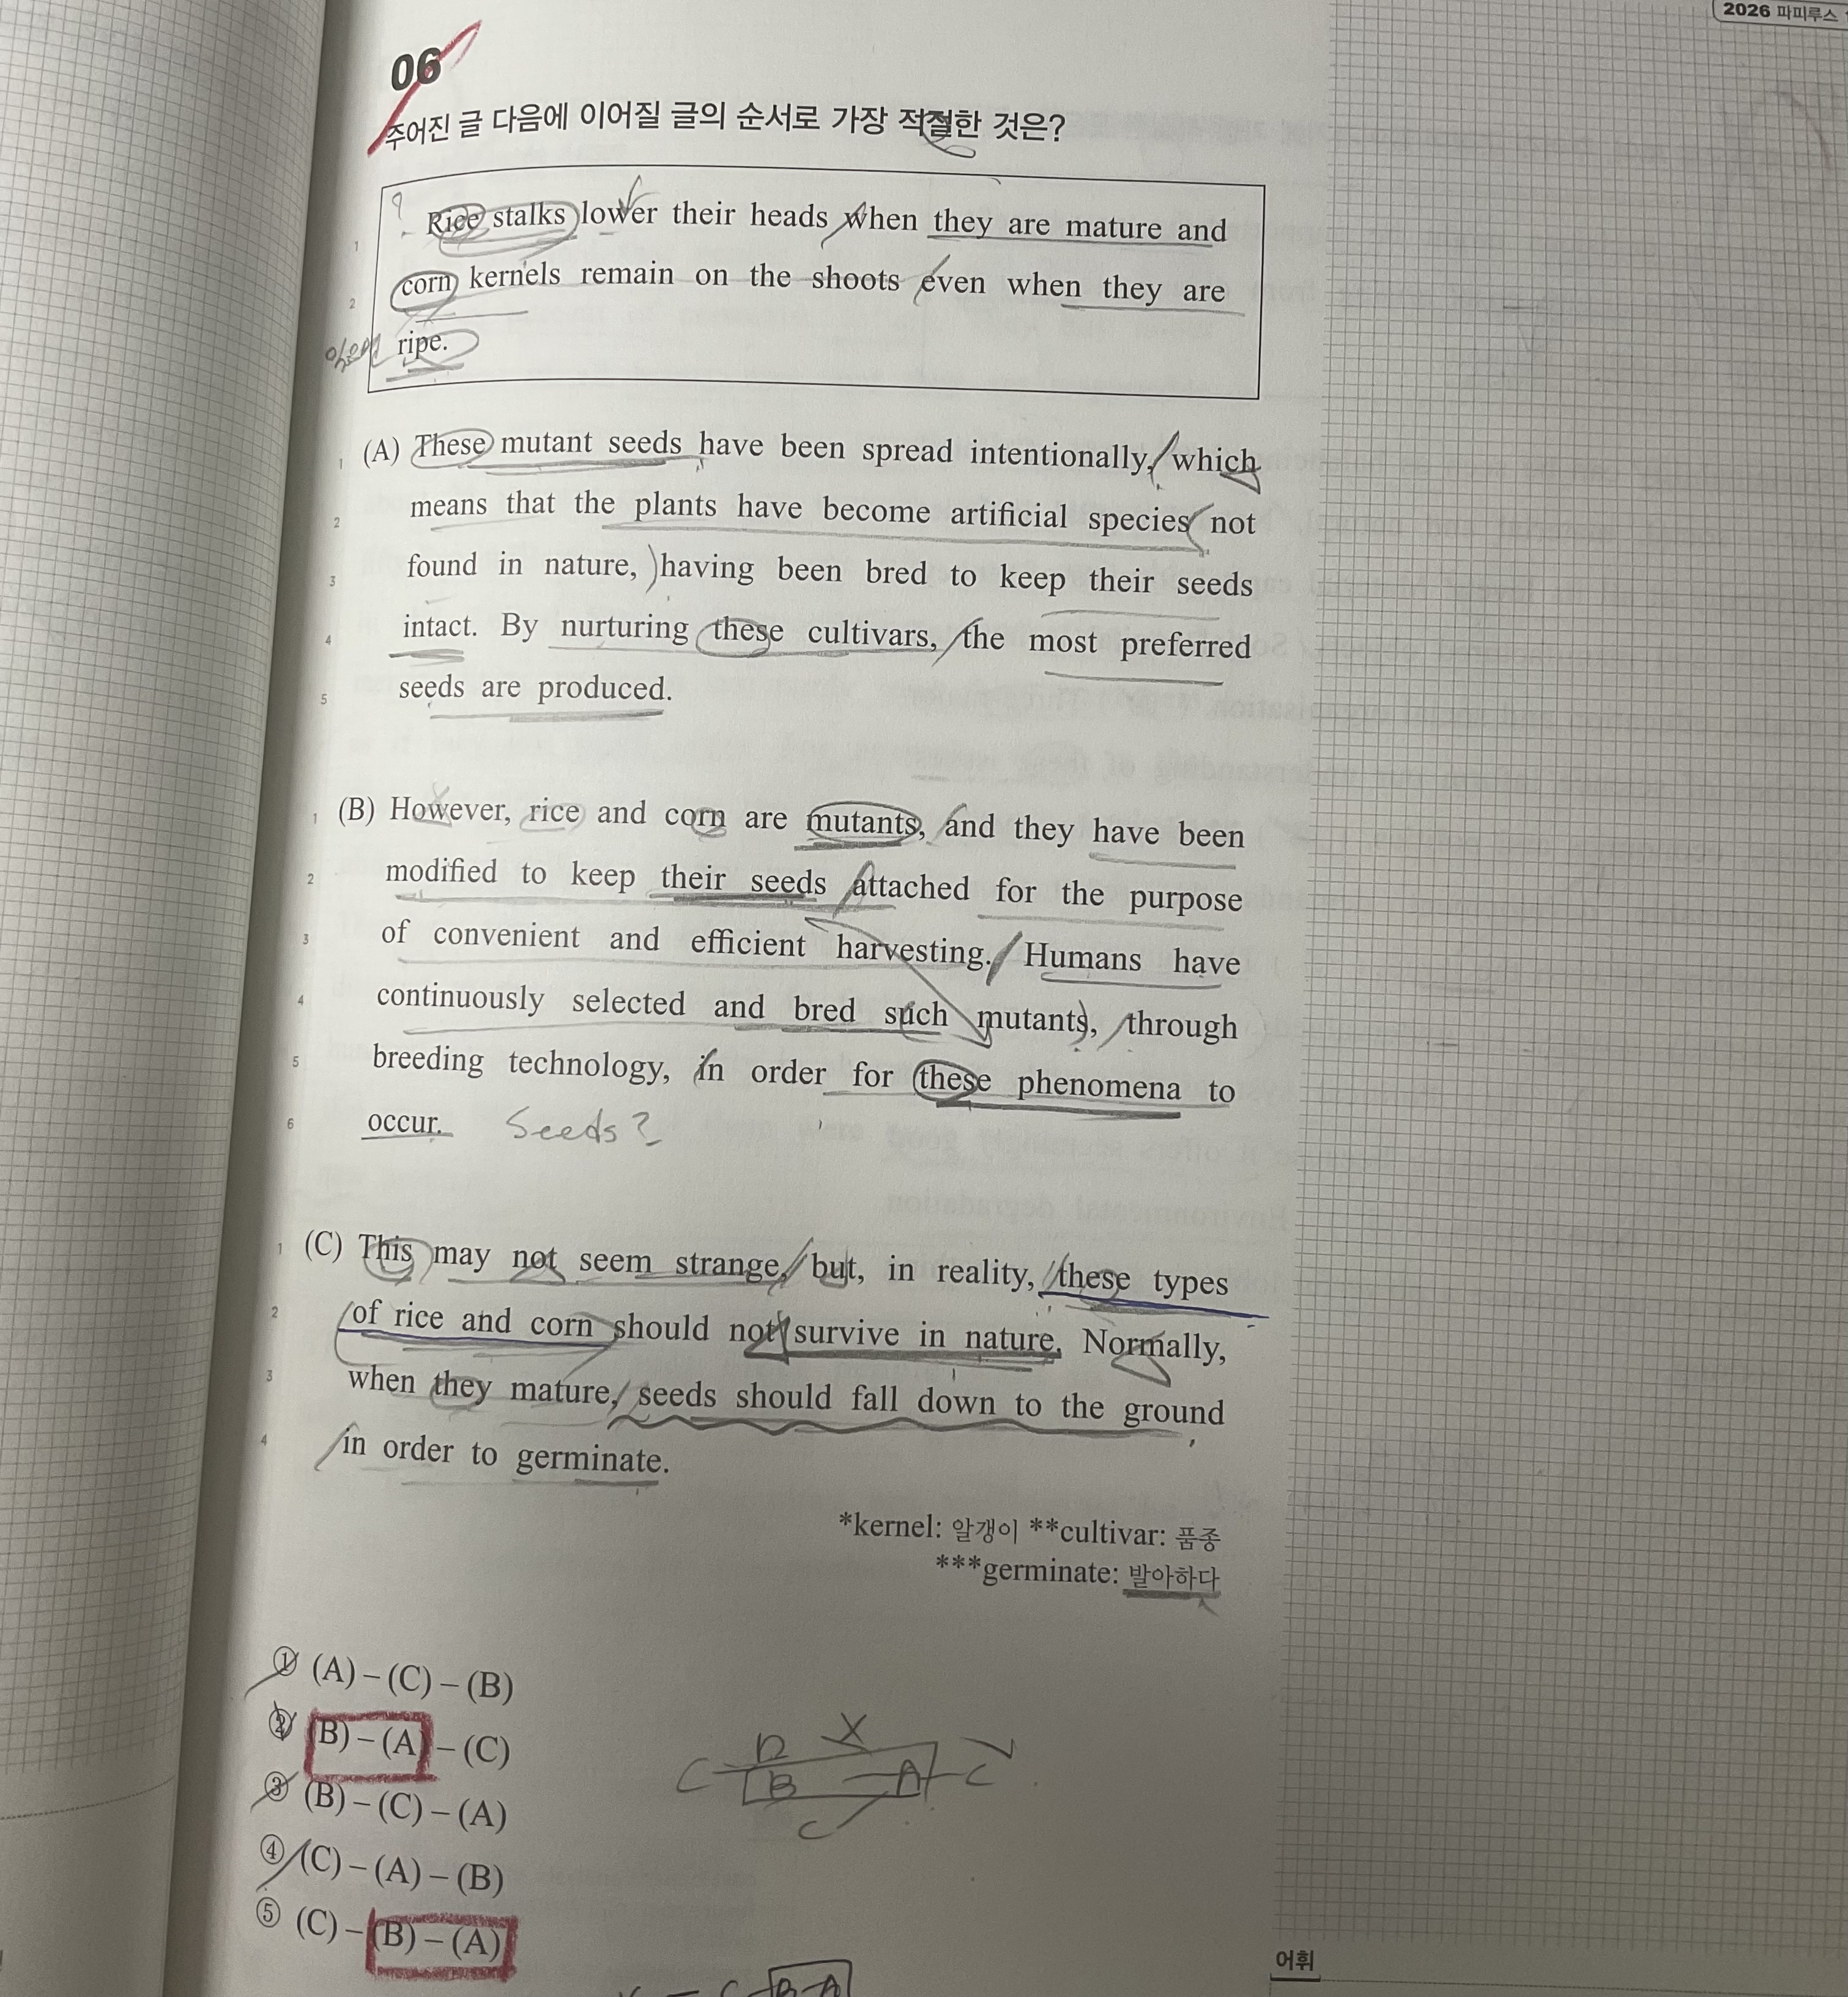 2026 파피루스
06
주어진 글 다음에 이어질 글의 순서로 가장 적절한 것은?
1 Rice stalks lower their heads when they are mature and
2 corn kernels remain on the shoots even when they are
ripe.
1 (A) These mutant seeds have been spread intentionally, which
2 means that the plants have become artificial species not
3 found in nature, having been bred to keep their seeds
4 intact. By nurturing these cultivars, the most preferred
5 seeds are produced.
1 (B) However, rice and corn are mutants, and they have been
2 modified to keep their seeds attached for the purpose
3 of convenient and efficient harvesting. Humans have
4 continuously selected and bred such mutants, through
5 breeding technology, in order for these phenomena to
6 occur. Seeds?
1 (C) This may not seem strange, but, in reality, these types
2 of rice and corn should not survive in nature. Normally,
3 when they mature, seeds should fall down to the ground
4 in order to germinate.
*kernel: 알갱이 **cultivar: 품종
***germinate: 발아하다
① (A) – (C) – (B)
② (B) – (A) – (C)
③ (B) – (C) – (A)
④ (C) – (A) – (B)
⑤ (C) – (B) – (A)
C B A C
C
C B-A
어휘